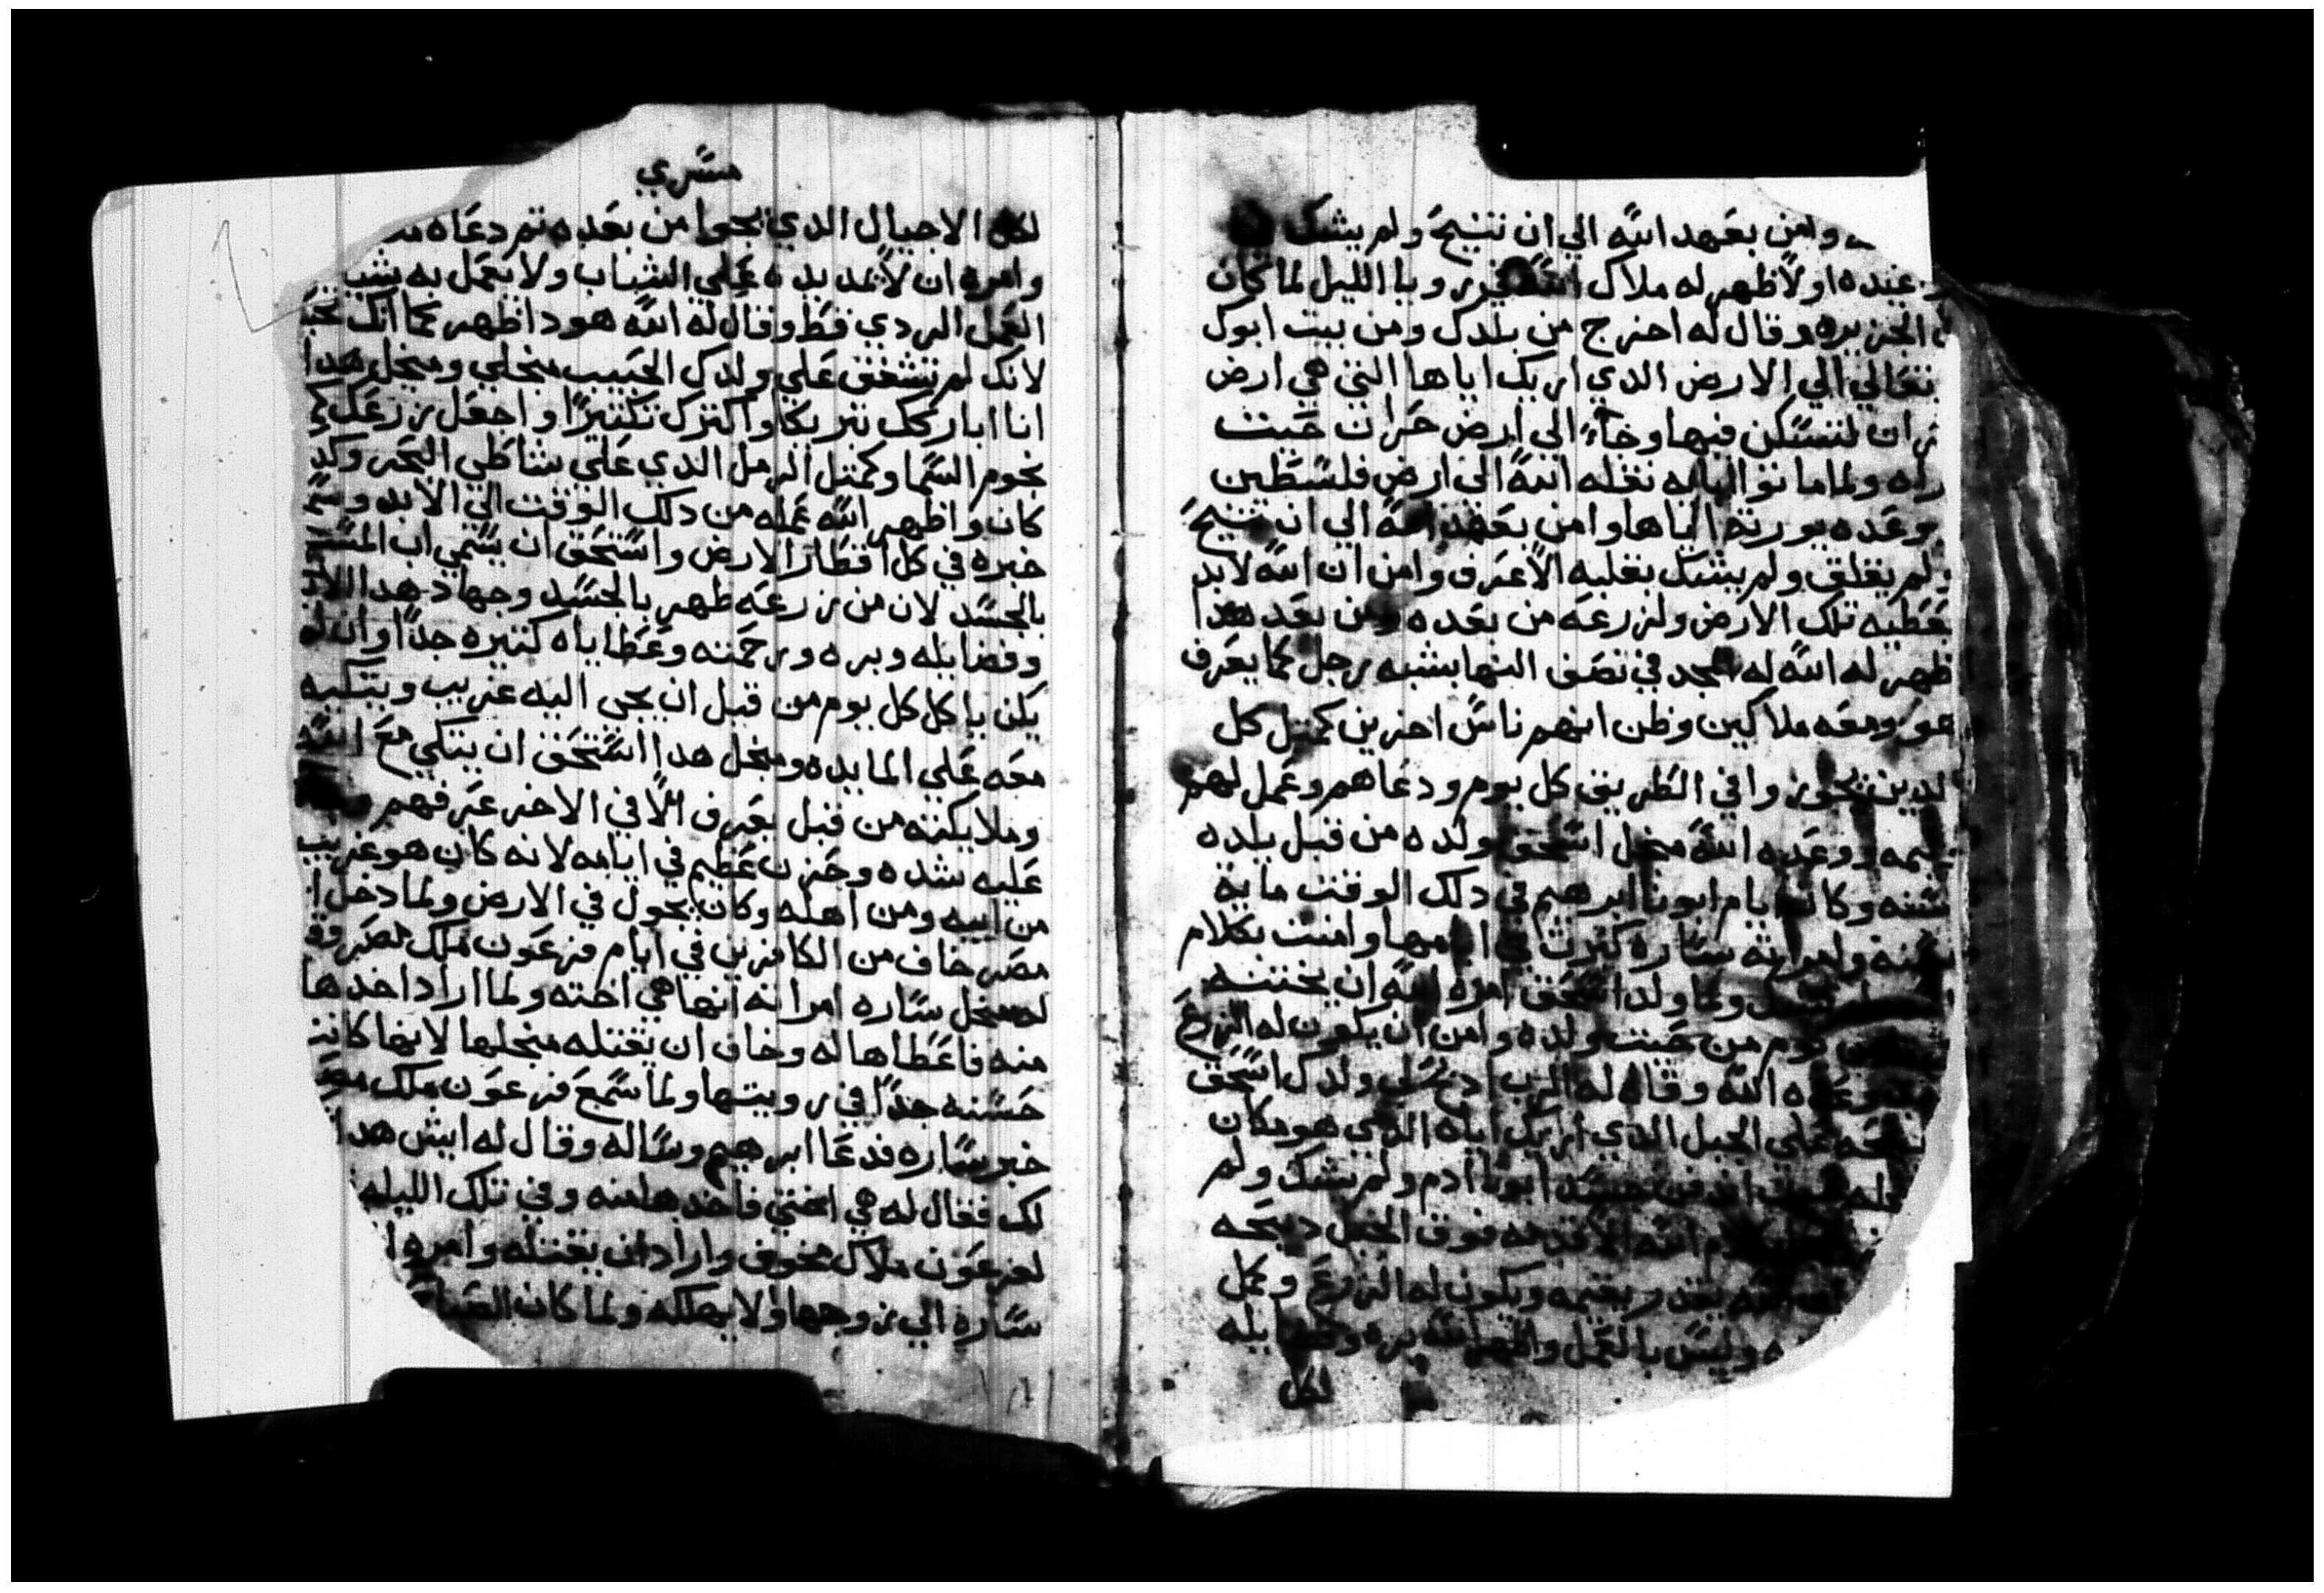 وامن بعهد الله الي ان تنيح ولم يشك
عنده اولا ظهر له ملاك الله حوريا بالليل لما كان
الجزيره وقال له اخرج من بلدك ومن بيت ابوك
تعالي الي الارض الدي اريك اياها التي هي ارض
ان لتسكن فيها وجاء الي ارض حران حيت
ولما ماتو نقله الله الي ارض فلسطين
وعده يورته اياها وامن بعهد الله الي ان تنيح
ولم يقلق ولم يشك بقلبه الا عرف وامن ان الله لابد
يعطيه تلك الارض ولزرعه من بعده ومن بعد هدا
ظهر له الله له المجد في نصف النها بشبه رجل كما يعرف
هو ومعه ملاكين وظن انهم ناس اخرين كمتل كل
لدين يجوزوا في الطريق كل يوم ودعاهم وعمل لهم
وليمه ووعده الله منجل اسحق ولده من قبل يلده
سنه وكانت ايام ابونا ابرهيم في دلك الوقت ماية
سنه وامراته ساره كبرت في ايامها وامنت بكلام
ولما ولد اسحق امره الله ان يختنه
يوم من حيت ولده وامن ان يكون له الزرع
وعده الله وقال له الرب ادبح لي ولدك اسحق
علي الجبل الدي اريك اياه الدي هو مكان
اندفن جسد ابونا ادم ولم يشك ولم
كلام الله الا قدمه فوق الجبل دبيحه
الله يقدر يقيمه ويكون له الزرع وعمل
وليس بالعمل واظهر الله بره وفضايله
لكل
مسري
لكل الاجيال الدي يجوا من بعده تم دعاه
وامره ان لا يمد يده علي الشباب ولا يعمل به
العمل الردي قط وقال له الله هودا ظهر كما انك تحب
لانك لم تشفق علي ولدك الحبيب منجلي ومنجل هدا
انا اباركك تبريكا واكترك تكتيرا واجعل زرعك
نجوم السما وكمتل الرمل الدي علي شاطي البحر وكد
كان واظهر الله عمله من دلك الوقت الي الابد
خبره في كل اقطار الارض واستحق ان يسمي اب
بالجسد لان من زرعه ظهر بالجسد وجهاد هدا
وفضايله وبره ورحمته وعطاياه كتيره جدا وانه لم
يكن ياكل كل يوم من قبل ان يجي اليه غريب ويتكيه
معه علي المايده ومنجل هدا استحق ان يتكي مع الله
وملايكته من قبل يعرف الا في الاخر عرفهم
عليه شده وحزن عظيم في ايامه لانه كان هو غريب
من ابيه ومن اهله وكان يجول في الارض ولما دخل
مصر خاف من الكافرين في ايام فرعون ملك مصر
له منجل ساره امراته انها هي اخته ولما اراد اخدها
منه فاعطاها له وخاف ان يقتله منجلها لانها كانت
حسنه جدا في رويتها ولما سمع فرعون ملك مصر
خبر ساره فدعا ابرهيم وساله وقال له ايش هدا
لك فقال له هي اختي فاخدها منه وفي تلك الليله
لفرعون ملاك مخوف واراد ان يقتله وامره
ساره الي زوجها ولا يهلكه ولما كان